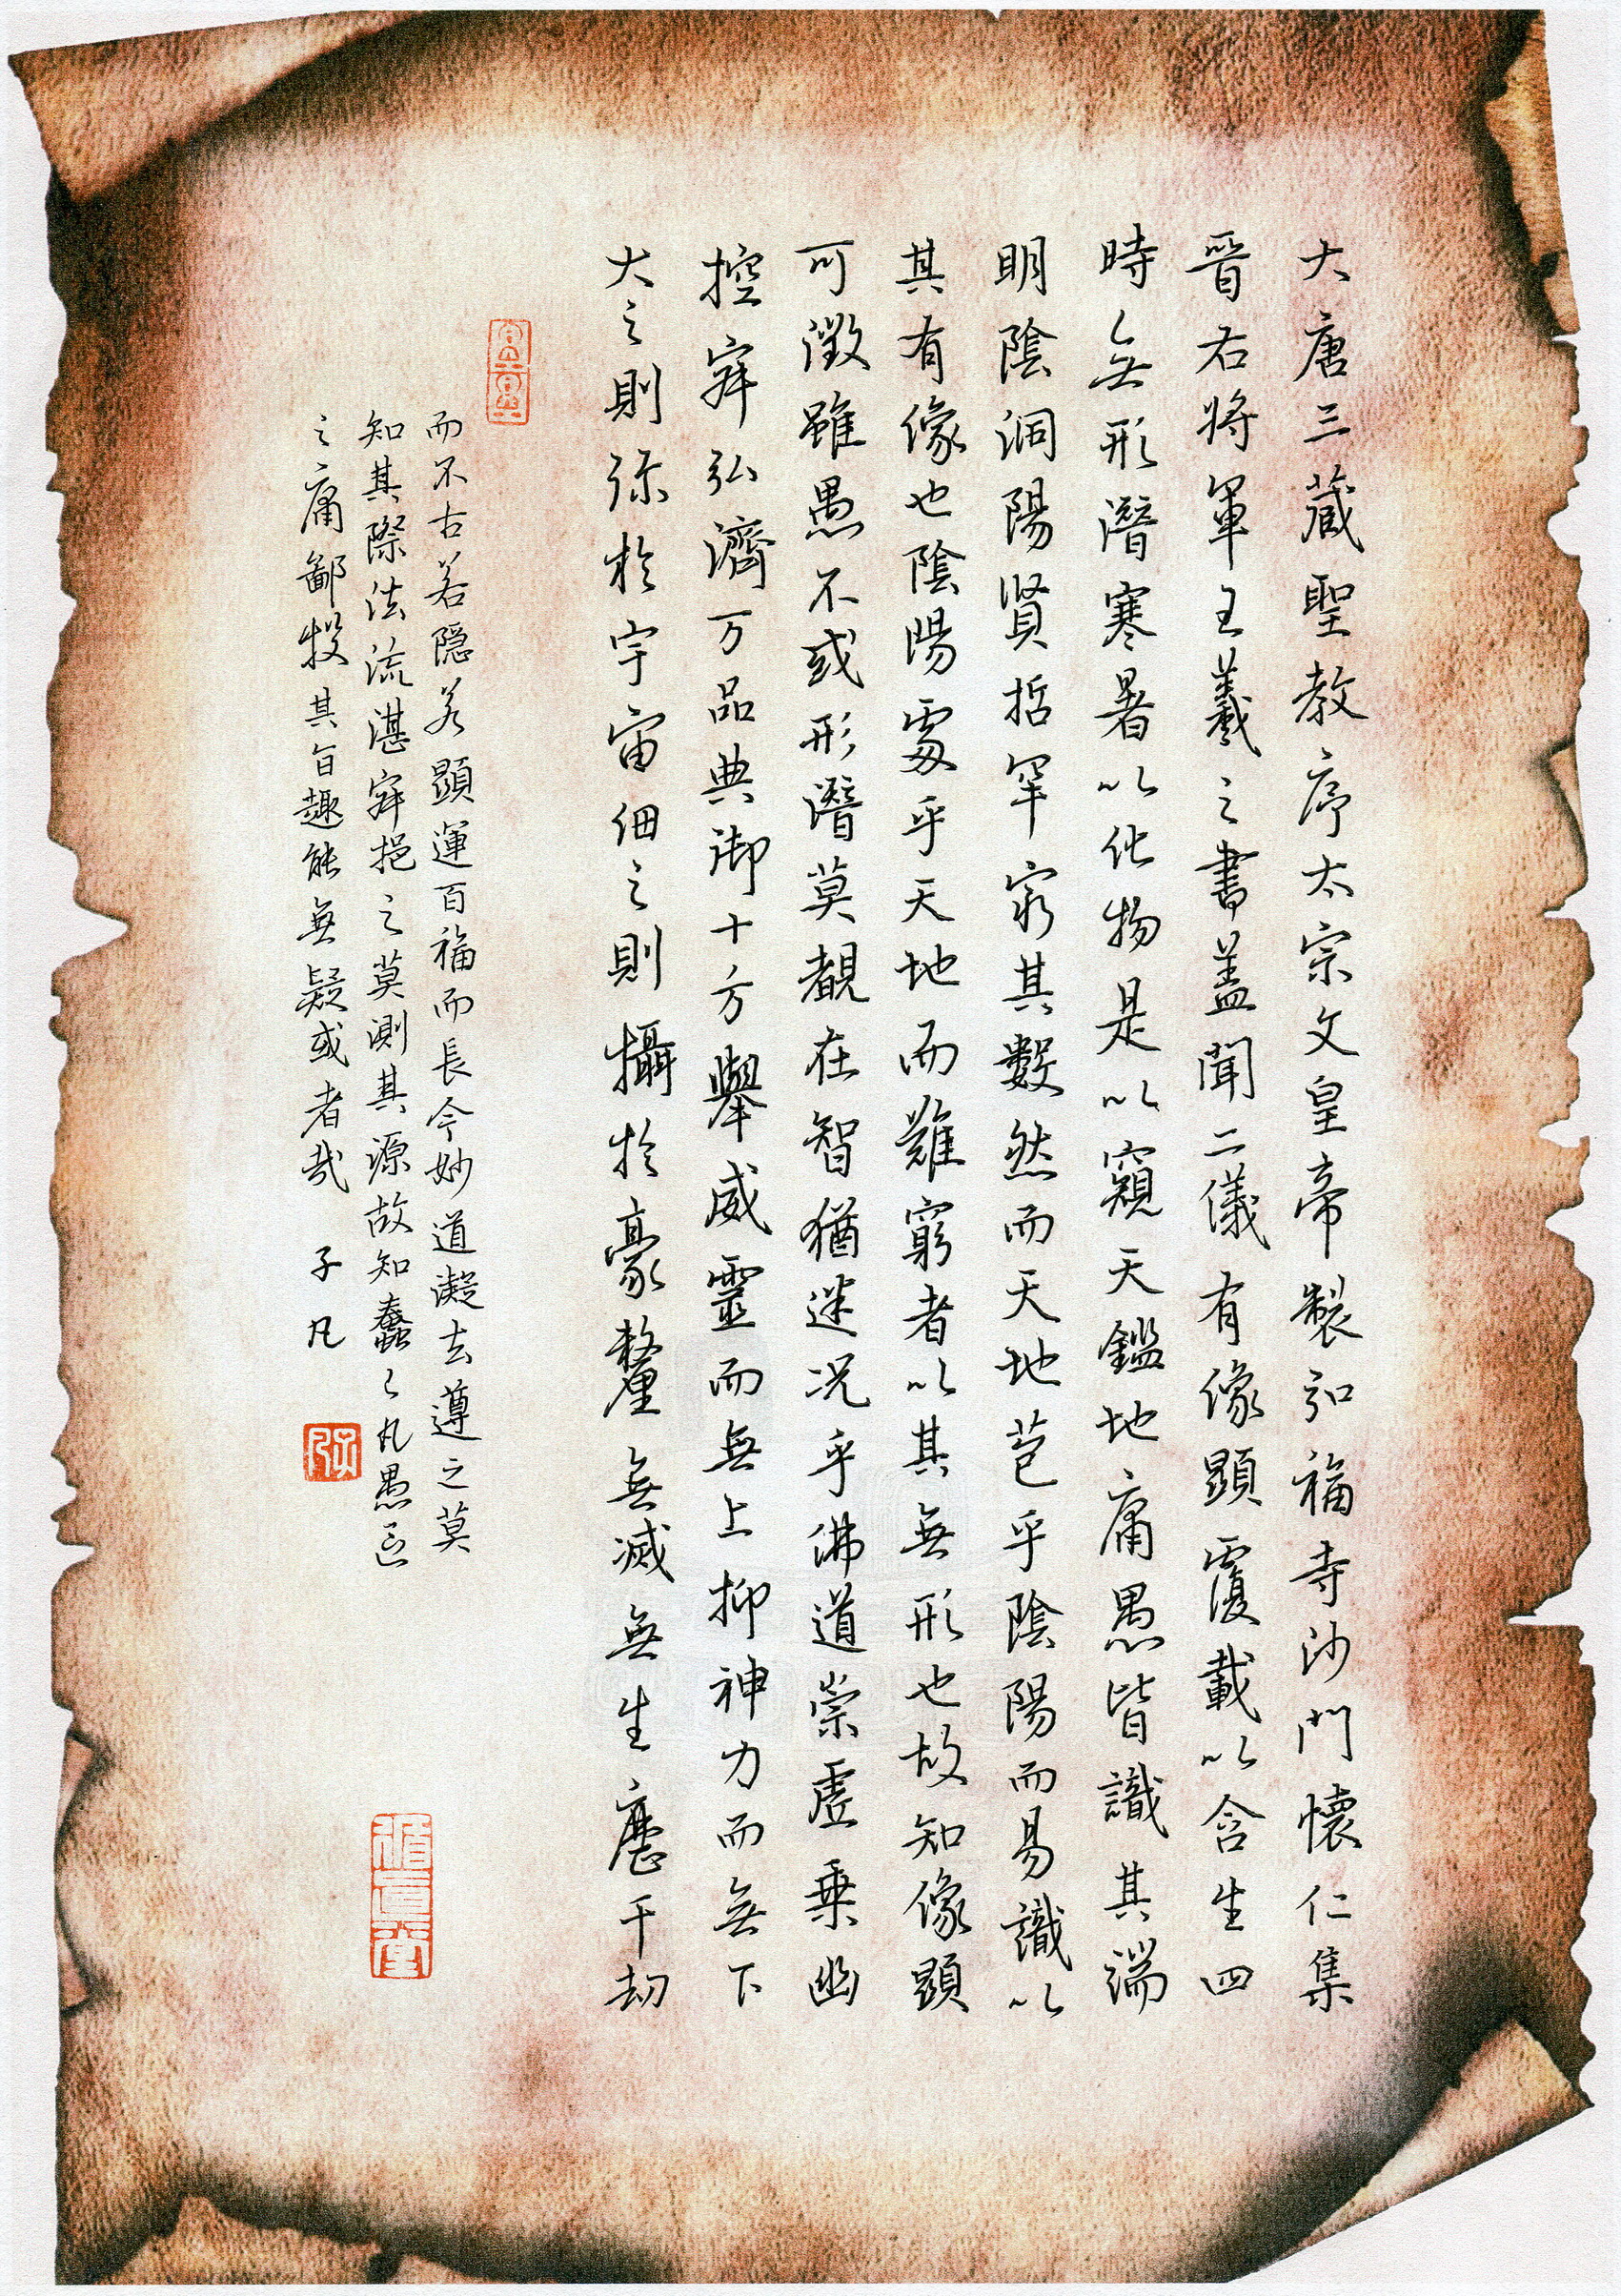 大唐三藏聖教序太宗文皇帝製弘福寺沙門懷仁集
晉右將軍王羲之書蓋聞二儀有像顯覆載以含生四
時無形潛寒暑以化物是以窺天鑑地庸愚皆識其端
明陰洞陽賢哲罕窮其數然而天地苞乎陰陽而易識以
其有像也陰陽處乎天地而難窮者以其無形也故知像顯
可徵雖愚不或形潛莫覩在智猶迷況乎佛道崇虛乘幽
控寂弘濟万品典御十方舉威靈而無上抑神力而無下
大之則弥於宇宙細之則攝於豪釐無滅無生歷千劫
而不古若隱若顯運百福而長今妙道凝玄遵之莫
知其際法流湛寂挹之莫測其源故知蠢々凡愚區
之庸鄙投其旨趣能無疑或者哉 子凡